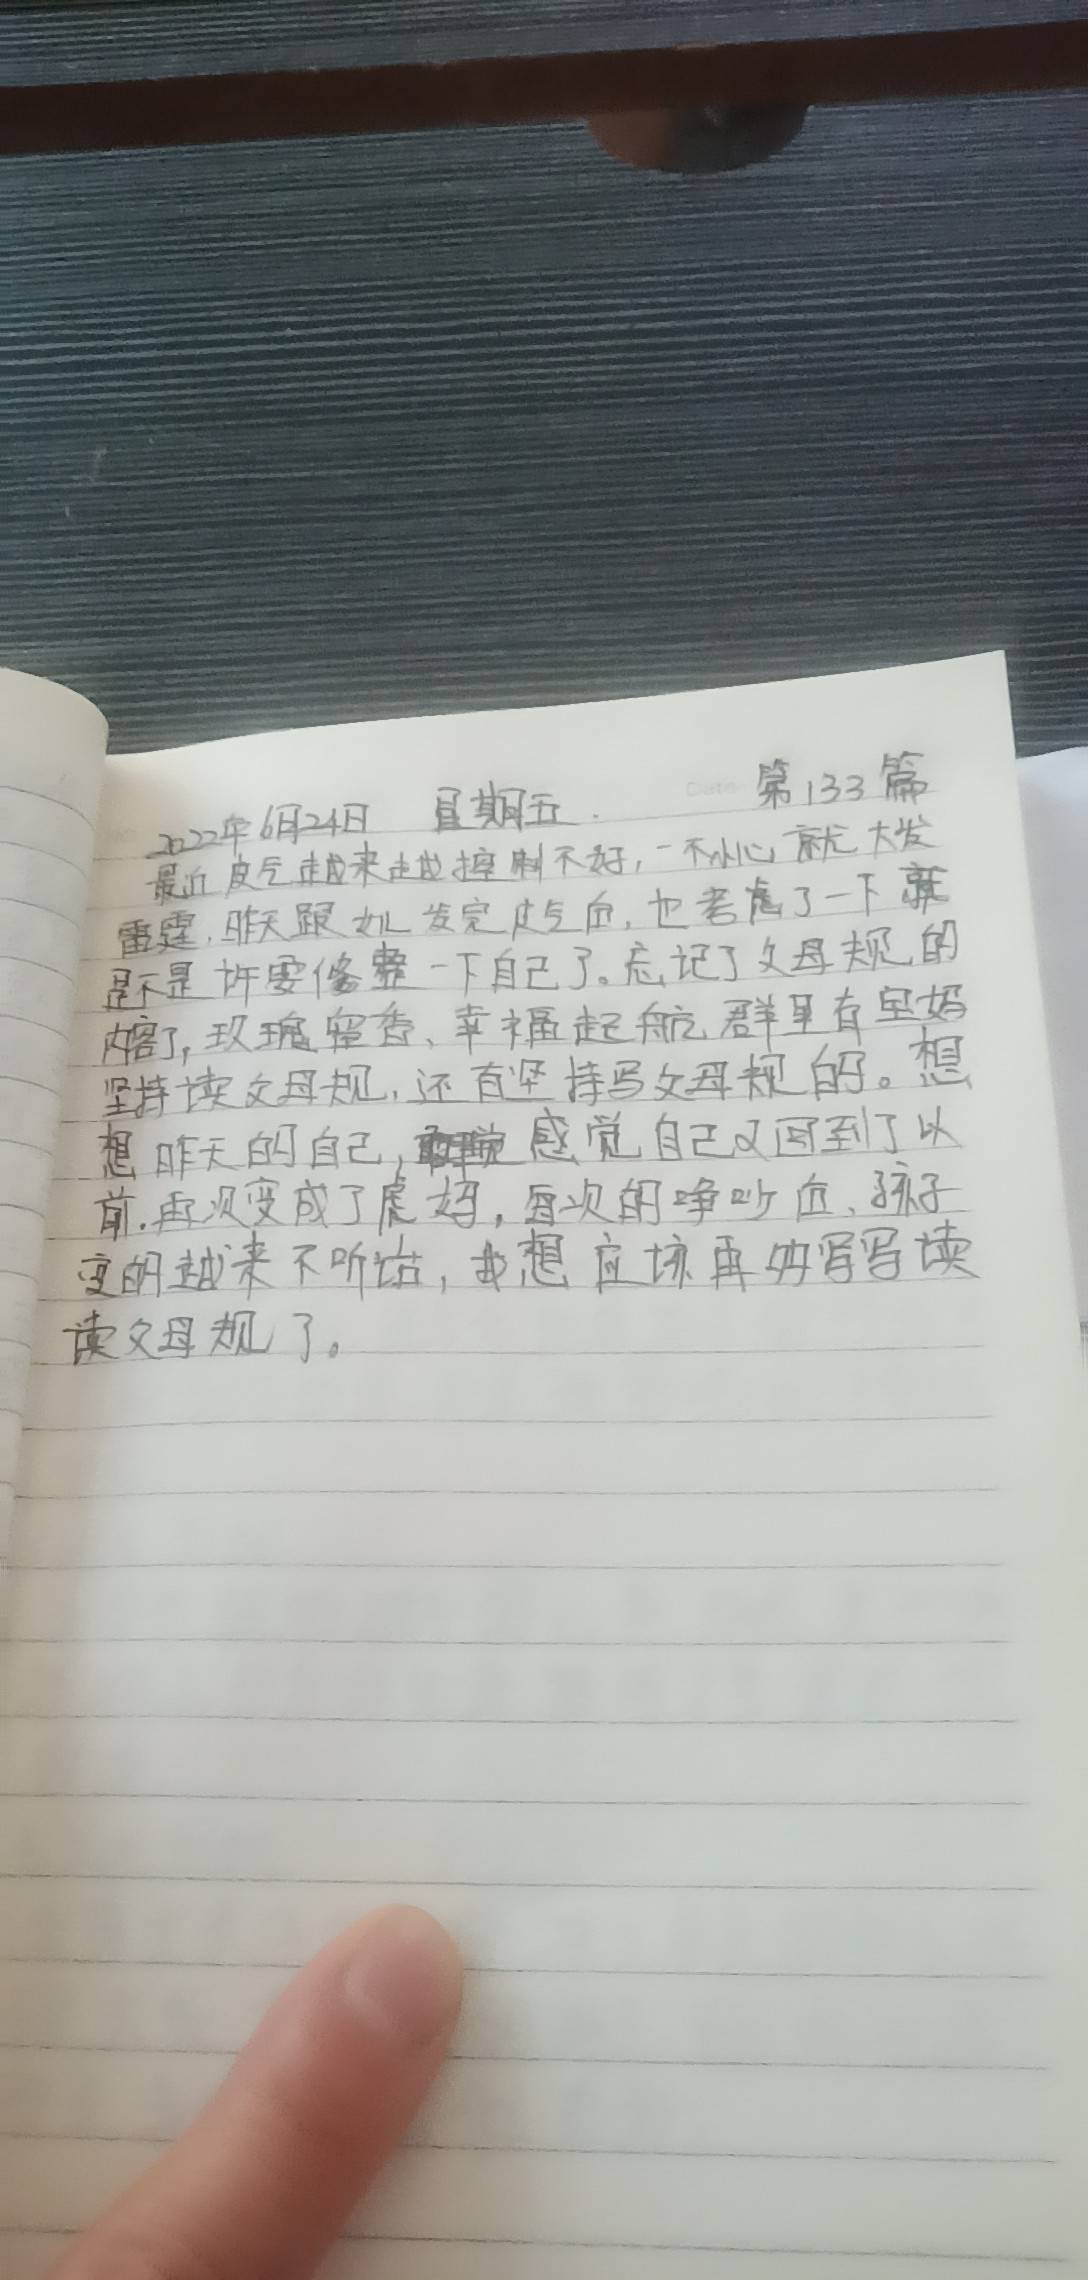 2022年6月24日 星期五. 第133篇
最近皮气越来越控制不好,一不小心就大发
雷霆,昨天跟女儿发完皮气后,也考虑了一下就
是不是许要修整一下自己了。忘记了父母规的
内容了,玫瑰留香、幸福起航群里有宝妈
坚持读父母规,还有坚持写父母规的。想
想昨天的自己,感觉自己又回到了以
前.再次变成了虎妈,每次的争吵后、孩子
变的越来不听话,我想应该再好写写读
读父母规了。